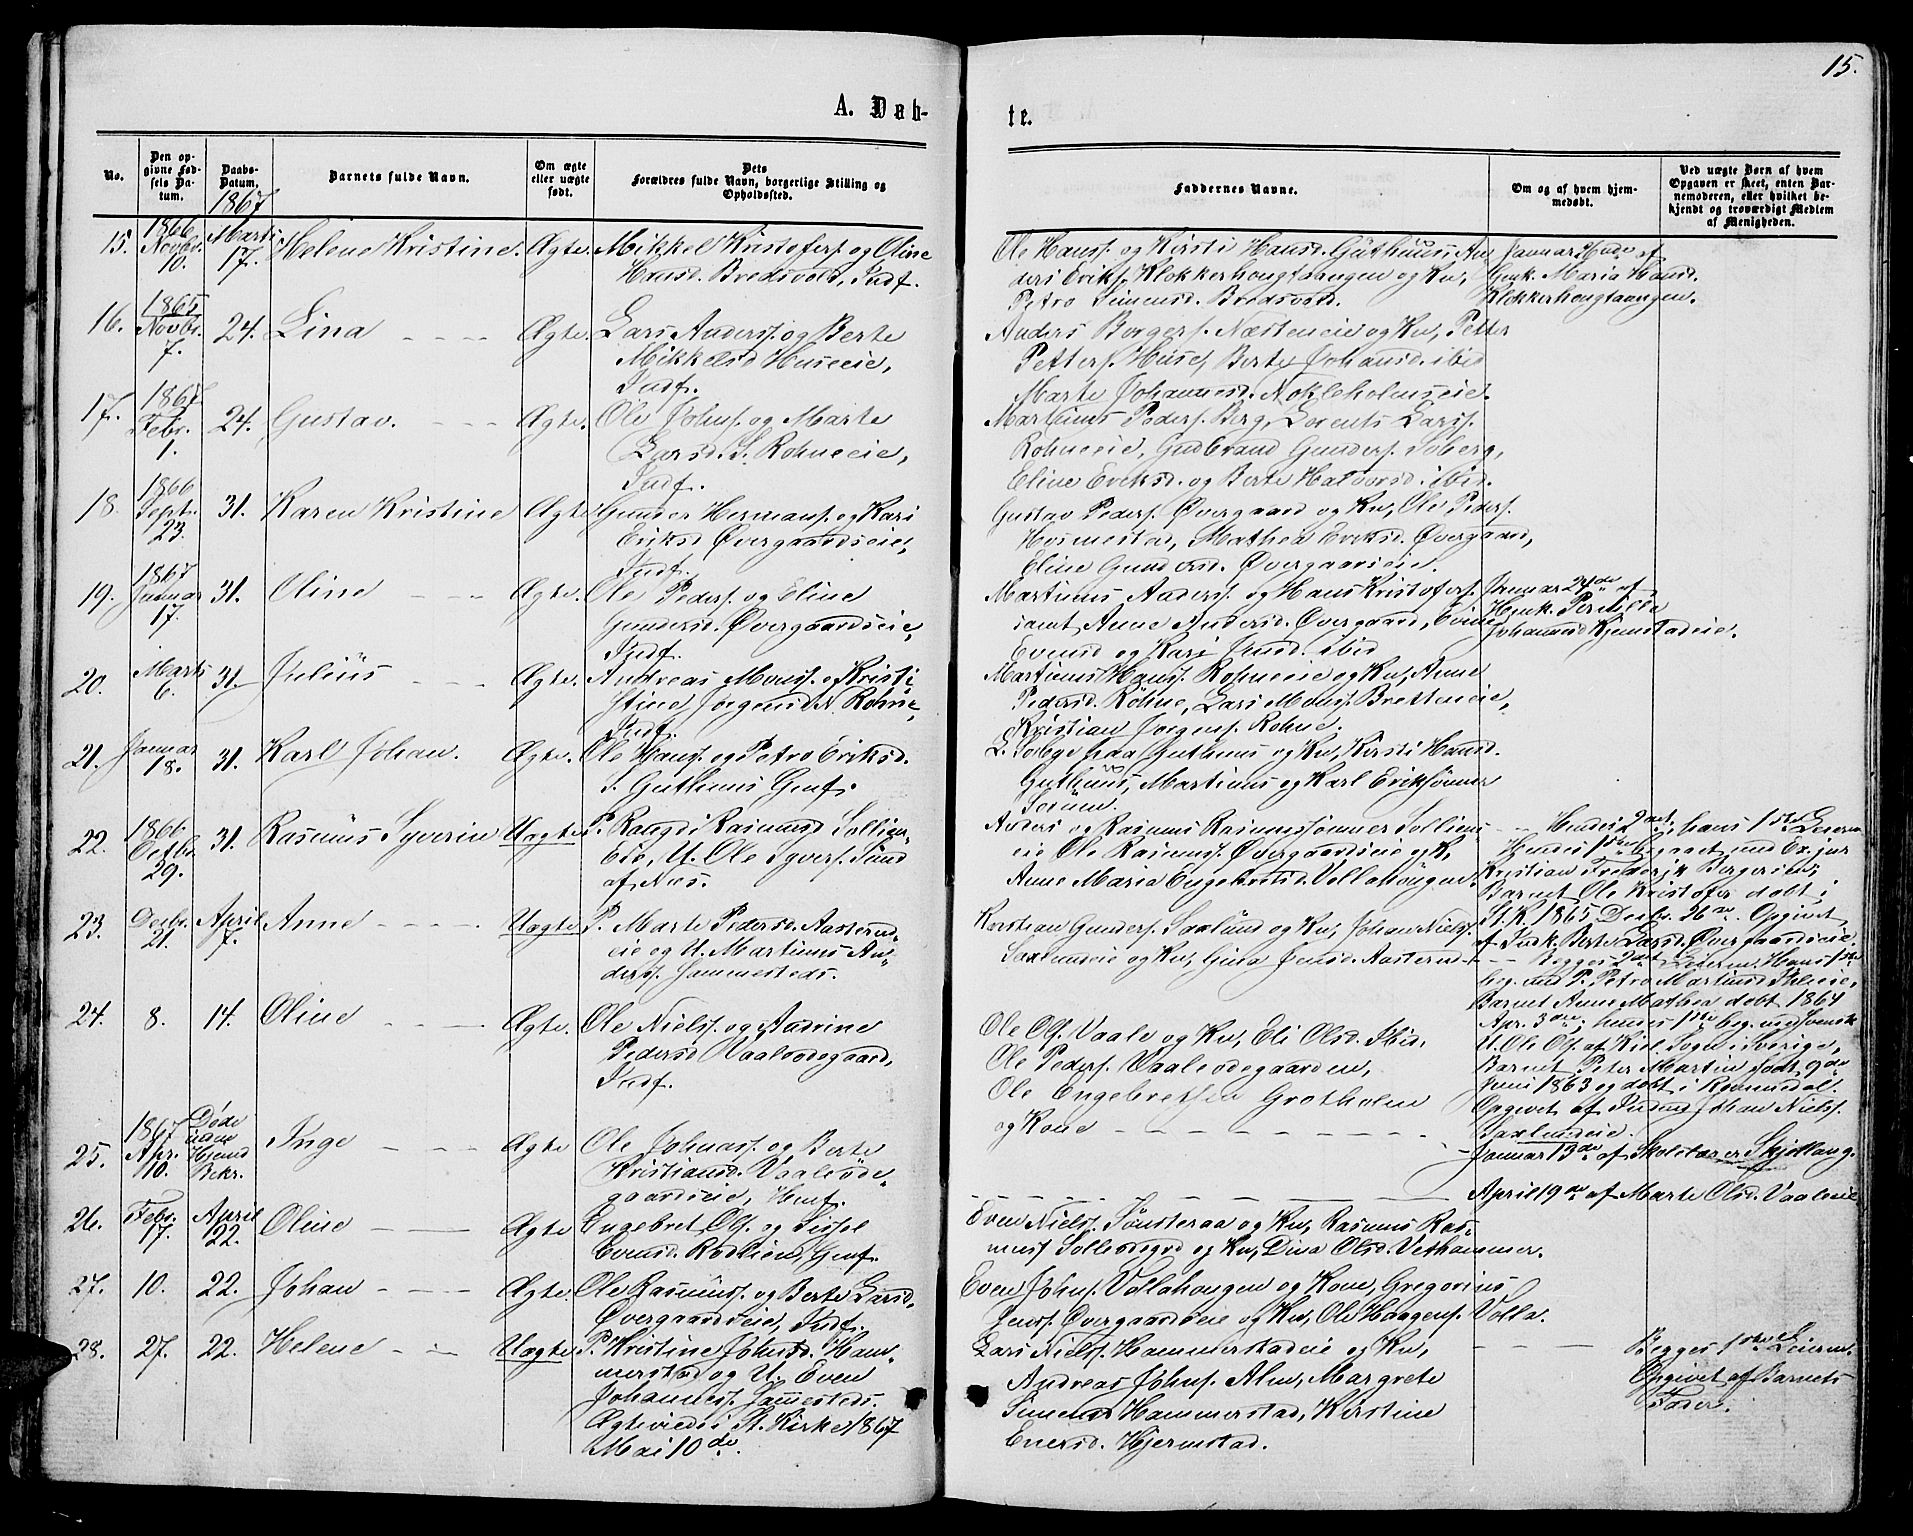 15.
A. Døb-
te.
No.
Den op-
givne Fød-
sels Da-
tum.
Daabs-
Datum.
1867
Barnets fulde Navn.
Om ægte
eller uægte
født.
Dets
Forældres fulde Navn, borgerlige Stilling og
Opholdssted.
Faddernes Navne.
Om og af hvem hjem-
medøbt.
Ved uægte Børn af hvem
Opgaven er skeet, enten Bar-
nemoderen, eller hvilket be-
kjendt og troværdigt Medlem
af Menigheden.
15.
1866
Novbr.
10.
Marts
17.
Helene Kristine.
Ægte.
Mikkel Kristofers. og Oline
Hansd. Bredsvold, Indf.
Ole Hanss. og Kirsti Hansd. Guthuus, An
ders Eriks. Klokkerhougtangen og Kv,
Petro Simensd. Bredsvold.
Januar af
Gmk. Maria Hansd.
Klokkerhougtangen.
16.
1865
Novbr.
7.
24.
Lina
Ægte.
Lars Anderss. og Berte
Mikkelsd Huseeie,
Indf.
Anders Borgers. Næsteneie og Kv, Petter
Petters. Huse, Berte Johansd. ibid
Marte Johannesd. Nokleholmseie.
17.
1867
Febr.
1.
24.
Gustav.
Ægte.
Ole Johns. og Marte
Larsd. S. Rohneeie,
Indf.
Marthinus Peders. Berg, Lorents Larss.
Rohneeie, Gudbrand Gunders. Soberg,
Eline Eriksd. og Berte Halvorsd. ibid.
18.
1866
Septr.
23.
31.
Karen Kristine
Ægte
Gunder Hermans. og Kari
Eriksd Øvergaardseie,
Indf.
Gustav Peders. Øvergaard og Kv, Ole Peders.
Hvimestad, Mathea Eriksd. Øvergaard,
Eline Gundersd. Øvergaardseie.
19.
1867
Januar
17.
31.
Oline
Ægte.
Ole Peders. og Eline
Gundersd. Øvergaardseie,
Indf.
Martinus Anderss. og Hans Kristofers.
samt Anne Andersd. Øvergaard, Eline
Evensd og Kari Jensd. ibid
Januar 24de af
Hmk. Pernilla
Johannesd Kjemstadeie.
20.
Marts
6.
31.
Julius
Ægte.
Andreas Monss. og Kristi
Stine Jorgensd N. Rohne,
Indf.
Martinus Hanss. Rohneeie og Kv, Anne
Pedersd. Rohne, Lars Monss. Bretteneie,
Kristian Jorgens. Rohne.
21.
Januar
18.
31.
Karl Johan.
Ægte.
Ole Hanss. og Petro Eriksd.
S. Guthuus Gmf.
L. Solbye paa Guthuus og Kv, Kirsti Hansd.
Guthuus, Martinus og Karl Eriksønner
Sorum.
22.
1866
Octbr.
29.
31.
Rasmus Syverin
Uægte
P. Rangdi Rasmusd Sollien
Eie, U. Ole Syvers. Sund
af Næs.
Anders og Rasmus Rasmussønner Solliens
eie Ole Rasmuss. Øvergaardseie og K,
Anne Maria Engebretsd. Vollahougen.
Hendes 2det, hans 1ste Leierm
Hendes 1ste begaaet med Ex. jur
Kristian Frederik Bergersen;
Barnet Ole Kristofer døbt i
St. K. 1865 Decbr. 26de. Opgivet
af Indk. Berte Larsd. Øvergaardseie.
23.
Decbr.
21.
April
7.
Anne
Uægte
P. Marte Pedersd. Aasterud-
eie og U. Martinus An-
derss. Hammersteds.
Kerstian Gunders. Saxlund og Kv, Johan Nielss.
Saxlundeie og Kv, Gina Jensd. Aasterud
Begges 2det Leierm. Hans 1ste
beg. med P. Petro Martinusd Thleie,
Barnet Anne Mathea døbt 1864
Apr. 3die; hennes 1ste beg. med svensk
U. Ole Ols. af Kiel. Sogn i Sverige,
Barnet Peter Martin født 9de
Juni 1863 og døbt i Romsdal.
Opgivet af Johan Nielss.
Saxlundeie.
24.
8.
14.
Oline
Ægte.
Ole Nielss. og Andrine
Pedersd Vaaleødegaard,
Indf.
Ole Ols. Vaale og Kv, Eli Olsd. Ibid,
Ole Peders. Vaaleødegaarden,
Ole Engebretsen Grotholm
og Kone
Januar 13de af Skolelærer Skjellang.
25.
1867
Apr.
10.
Døde
inden
Hjemd
Bekr.
Inge
Ægte
Ole Johnss. og Berte
Kristiansd. Vaaleøde-
gaardseie, Hmf.
April 19de af Marte Olsd. Vaaleeie
26.
Febr.
17.
April
22.
Oline
Ægte
Engebret Ols. og Sissel
Evensd. Rodlien, Gmf.
Even Nielss. Sønsteraa og Kv, Rasmus Ras-
muss Solleødegrd og Kv, Dina Olsd. Vethammer.
27.
10.
22.
Johan
Ægte.
Ole Rasmuss. og Berte Larsd.
Øvergaardseie, Indf.
Even Johns. Vollahougen og Kone, Gregorius
Jenss. Øvergaardseie og Kv, Ole Haagens. Volla.
28.
27.
22.
Helene
Uægte
P. Kristine Johnsd. Ham-
merstad og U. Even
Johanness. Hammersteds.
Ægteviede i St. Kirke 1867
Mai 10de.
Lars Nielss. Hammerstadeie og Kv,
Andreas Johns. Alm, Margrete
Simensd Hammerstad, Kirstine
Enersd. Hjermstad.
Begges 1ste Leierm.
Opgivet af Barnets
Fader.